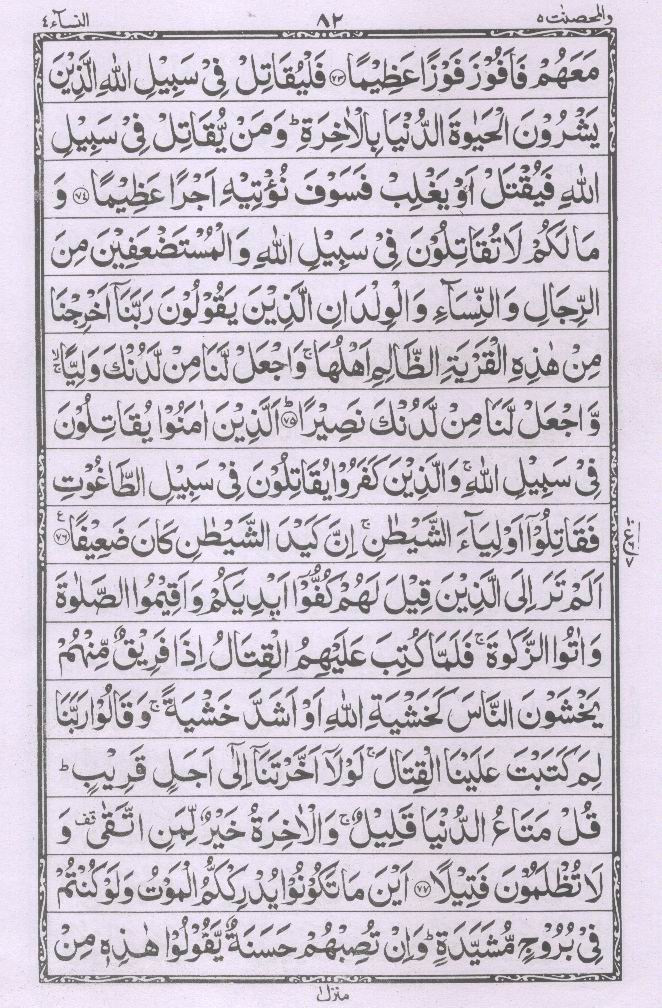 والمحصنت ۵ ۸۲ النسآء ٤
مَعَهُمْ فَاَفُوْزَ فَوْزًا عَظِيْمًا ﴿۷۳﴾ فَلْيُقَاتِلْ فِيْ سَبِيْلِ اللّٰهِ الَّذِيْنَ
يَشْرُوْنَ الْحَيٰوةَ الدُّنْيَا بِالْاٰخِرَةِ ؕ وَمَنْ يُّقَاتِلْ فِيْ سَبِيْلِ
اللّٰهِ فَيُقْتَلْ اَوْ يَغْلِبْ فَسَوْفَ نُؤْتِيْهِ اَجْرًا عَظِيْمًا ﴿۷٤﴾ وَ
مَا لَكُمْ لَا تُقَاتِلُوْنَ فِيْ سَبِيْلِ اللّٰهِ وَالْمُسْتَضْعَفِيْنَ مِنَ
الرِّجَالِ وَالنِّسَآءِ وَالْوِلْدَانِ الَّذِيْنَ يَقُوْلُوْنَ رَبَّنَآ اَخْرِجْنَا
مِنْ هٰذِهِ الْقَرْيَةِ الظَّالِمِ اَهْلُهَا ۚ وَاجْعَلْ لَّنَا مِنْ لَّدُنْكَ وَلِيًّا ۙۚ
وَّاجْعَلْ لَّنَا مِنْ لَّدُنْكَ نَصِيْرًا ﴿۷۵﴾ؕ اَلَّذِيْنَ اٰمَنُوْا يُقَاتِلُوْنَ
فِيْ سَبِيْلِ اللّٰهِ ۚ وَالَّذِيْنَ كَفَرُوْا يُقَاتِلُوْنَ فِيْ سَبِيْلِ الطَّاغُوْتِ
فَقَاتِلُوْٓا اَوْلِيَآءَ الشَّيْطٰنِ ۚ اِنَّ كَيْدَ الشَّيْطٰنِ كَانَ ضَعِيْفًا ﴿۷٦﴾ ع
اَلَمْ تَرَ اِلَى الَّذِيْنَ قِيْلَ لَهُمْ كُفُّوْٓا اَيْدِيَكُمْ وَاَقِيْمُوا الصَّلٰوةَ
وَاٰتُوا الزَّكٰوةَ ۚ فَلَمَّا كُتِبَ عَلَيْهِمُ الْقِتَالُ اِذَا فَرِيْقٌ مِّنْهُمْ
يَخْشَوْنَ النَّاسَ كَخَشْيَةِ اللّٰهِ اَوْ اَشَدَّ خَشْيَةً ۚ وَقَالُوْا رَبَّنَا
لِمَ كَتَبْتَ عَلَيْنَا الْقِتَالَ ۚ لَوْلَآ اَخَّرْتَنَآ اِلٰٓى اَجَلٍ قَرِيْبٍ ؕ
قُلْ مَتَاعُ الدُّنْيَا قَلِيْلٌ ۚ وَالْاٰخِرَةُ خَيْرٌ لِّمَنِ اتَّقٰى قف وَ
لَا تُظْلَمُوْنَ فَتِيْلًا ﴿۷۷﴾ اَيْنَ مَا تَكُوْنُوْا يُدْرِكْكُّمُ الْمَوْتُ وَلَوْ كُنْتُمْ
فِيْ بُرُوْجٍ مُّشَيَّدَةٍ ؕ وَاِنْ تُصِبْهُمْ حَسَنَةٌ يَّقُوْلُوْا هٰذِهٖ مِنْ
منزل ١